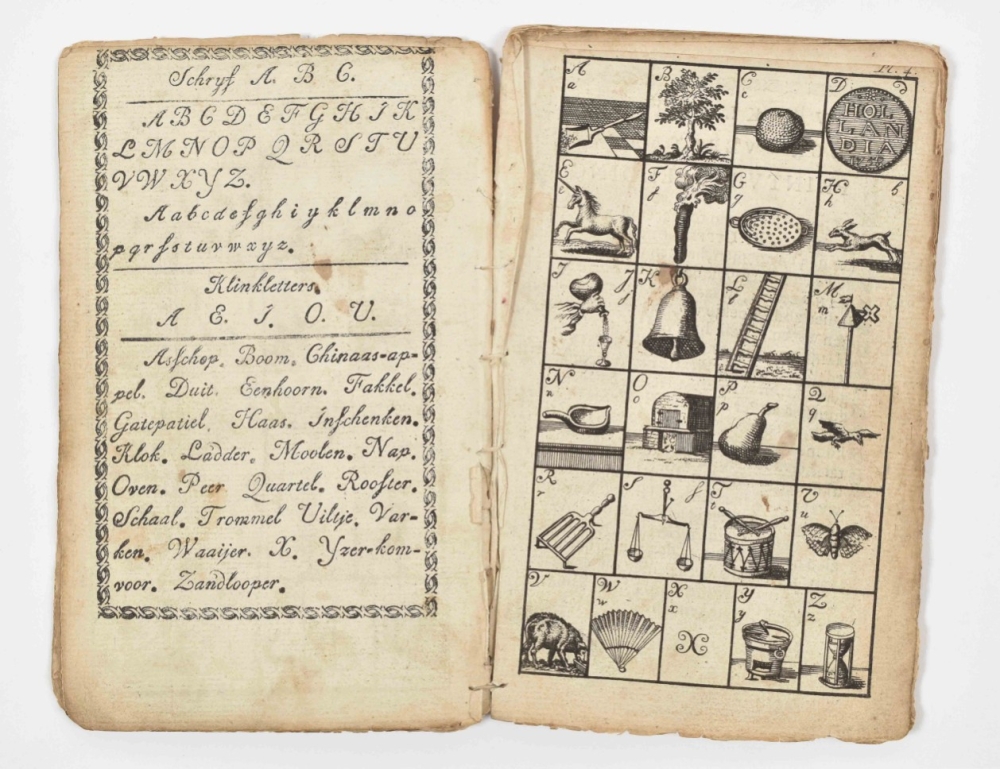 Schryf A. B C.
A B C D E F G H I K
L M N O P Q R S T U
V W X Y Z.
A a b c d e f g h i y k l m n o
p q r ſ s t u v w x y z.
Klinkletters.
A E. I. O. U.
Asſchop. Boom. Chinaas-ap-
pel. Duit. Eenhoorn. Fakkel.
Gatepatiel. Haas. Inſchenken.
Klok. Ladder. Moolen. Nap.
Oven. Peer Quartel. Rooſter.
Schaal. Trommel Uiltje. Var-
ken. Waaijer. X. Yzer-kom-
voor. Zandlooper.
Pl. 4.
A a
B b
C c
D d
HOL
LAN
DIA
E e
F f
G g
H h
I J
K
L l
M m
N n
O o
P p
Q q
R r
S ſ
T t
U u
V
W w
X x
X
Y y
Z z